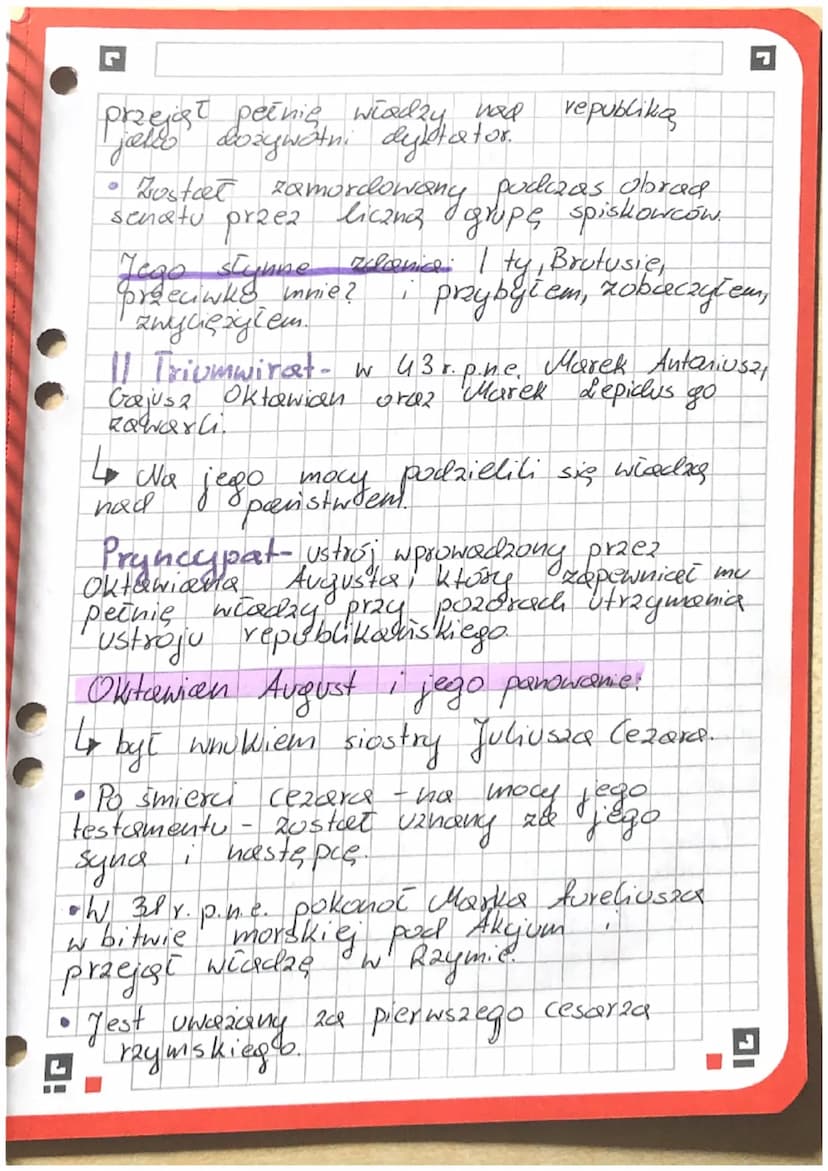 przejął pełnię władzy nad republiką
jako dożywotni dyktator.
• Został zamordowany podczas obrad
senatu przez liczną grupę spiskowców.
Jego słynne zdania: I ty, Brutusie,
przeciwko mnie? i przybyłem, zobaczyłem,
zwyciężyłem.
II Triumwirat- w 43 r. p.n.e. Marek Antoniusz,
Gajusz Oktawian oraz Marek Lepidus go
zawarli.
↳ Na jego mocy podzielili się władzą
nad państwem.
Pryncypat- ustrój wprowadzony przez
Oktawiana Augusta, który zapewniał mu
pełnię władzy przy pozorach utrzymania
ustroju republikańskiego.
Oktawian August i jego panowanie:
↳ był wnukiem siostry Juliusza Cezara.
• Po śmierci cezara - na mocy jego
testamentu - został uznany za jego
syna i następcę.
• W 31 r. p.n.e. pokonał Marka Aureliusza
w bitwie morskiej pod Akcjum i
przejął władzę w Rzymie.
• Jest uważany za pierwszego cesarza
rzymskiego.